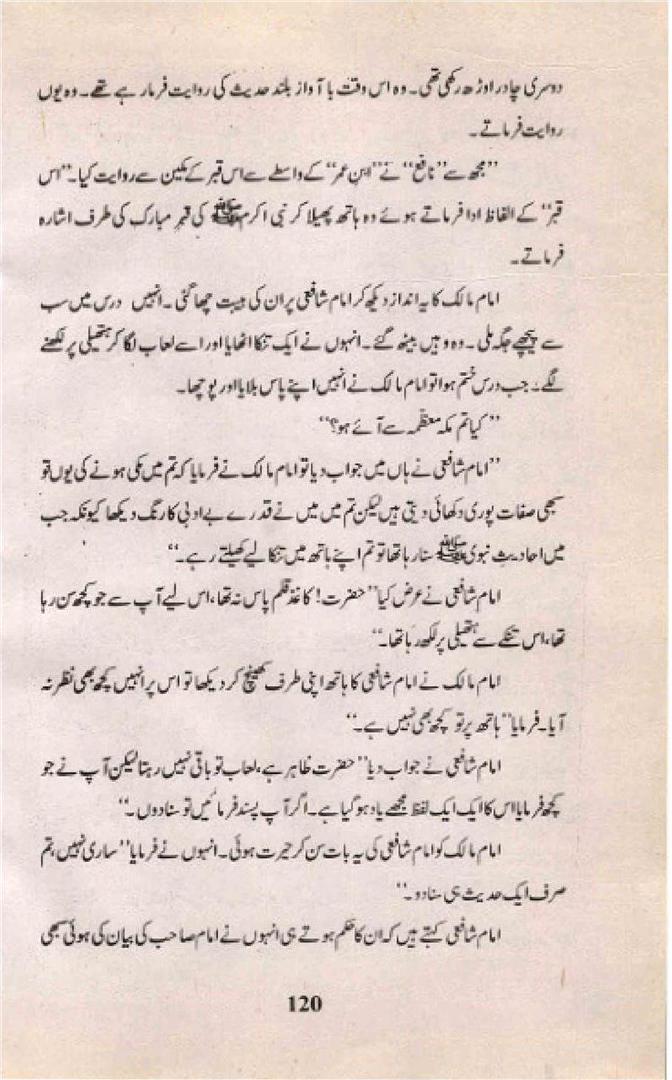 دوسری چادر اوڑھ رکھی تھی۔ وہ اس وقت با آواز بلند حدیث کی روایت فرما رہے تھے۔ وہ یوں
روایت فرماتے۔
”مجھ سے ”نافع“ نے ”ابن عمر“ کے واسطے سے اس قبر کے مکین سے روایت کیا۔“ اس
قبر“ کے الفاظ ادا فرماتے ہوئے وہ ہاتھ پھیلا کر نبی اکرم ﷺ کی قبر مبارک کی طرف اشارہ
فرماتے۔
امام مالک کا یہ انداز دیکھ کر امام شافعی پر ان کی ہیبت چھا گئی۔ انہیں درس میں سب
سے پیچھے جگہ ملی۔ وہ وہیں بیٹھ گئے۔ انہوں نے ایک تنکا اٹھایا اور اسے لعاب لگا کر ہتھیلی پر لکھنے
لگے۔ جب درس ختم ہوا تو امام مالک نے انہیں اپنے پاس بلایا اور پوچھا۔
”کیا تم مکہ معظمہ سے آئے ہو؟“
”امام شافعی نے ہاں میں جواب دیا تو امام مالک نے فرمایا کہ تم میں مکی ہونے کی یوں تو
سبھی صفات پوری دکھائی دیتی ہیں لیکن تم میں میں نے قدرے بے ادبی کا رنگ دیکھا کیونکہ جب
میں احادیث نبوی ﷺ سنا رہا تھا تو تم اپنے ہاتھ میں تنکا لیے کھیلتے رہے۔“
امام شافعی نے عرض کیا ”حضرت! کاغذ قلم پاس نہ تھا، اس لیے آپ سے جو کچھ سن رہا
تھا، اس تنکے سے ہتھیلی پر لکھ رہا تھا۔“
امام مالک نے امام شافعی کا ہاتھ اپنی طرف کھینچ کر دیکھا تو اس پر انہیں کچھ بھی نظر نہ
آیا۔ فرمایا ”ہاتھ پر تو کچھ بھی نہیں ہے۔“
امام شافعی نے جواب دیا ”حضرت ظاہر ہے، لعاب تو باقی نہیں رہتا لیکن آپ نے جو
کچھ فرمایا اس کا ایک ایک لفظ مجھے یاد ہو گیا ہے۔ اگر آپ پسند فرمائیں تو سنا دوں۔“
امام مالک کو امام شافعی کی یہ بات سن کر حیرت ہوئی۔ انہوں نے فرمایا ”ساری نہیں، تم
صرف ایک حدیث ہی سنا دو۔“
امام شافعی کہتے ہیں کہ ان کا حکم ہوتے ہی انہوں نے امام صاحب کی بیان کی ہوئی سبھی
120